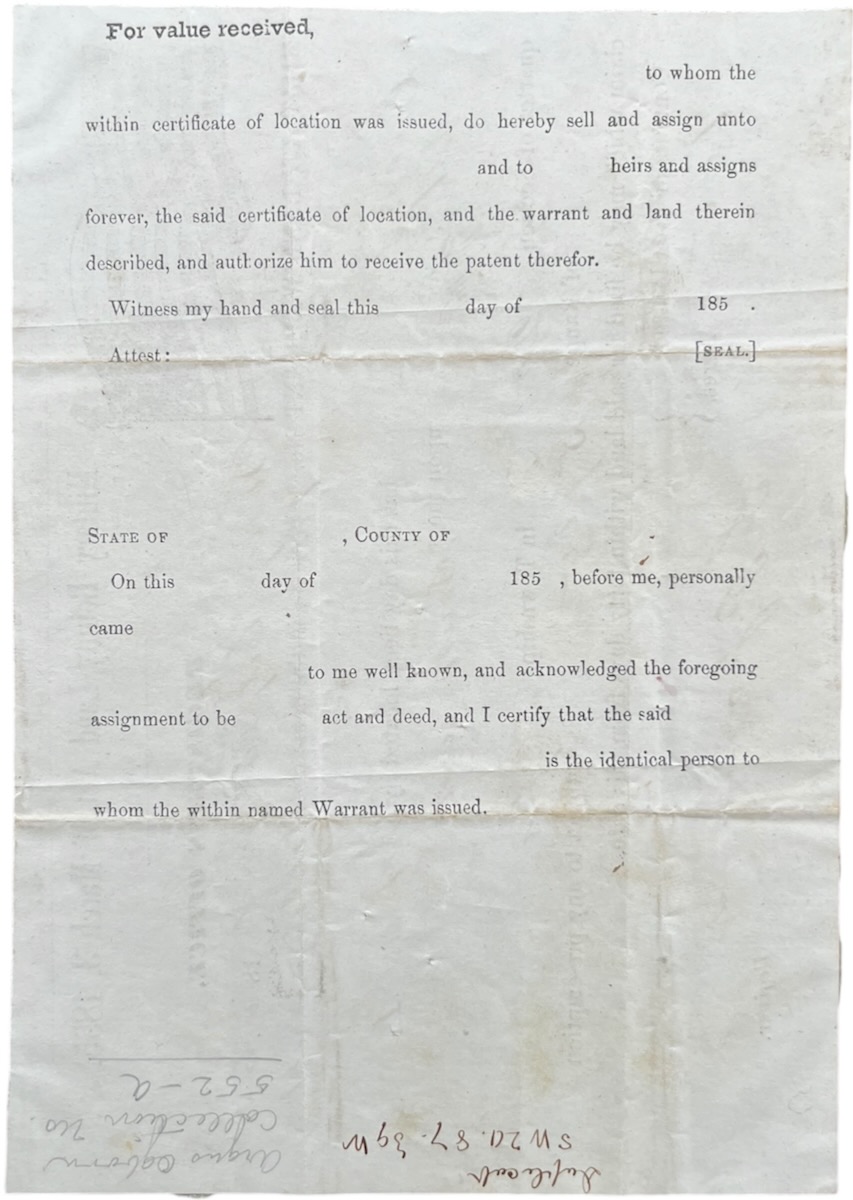 For value received,
to whom the
within certificate of location was issued, do hereby sell and assign unto
and to heirs and assigns
forever, the said certificate of location, and the warrant and land therein
described, and authorize him to receive the patent therefor.
Witness my hand and seal this day of 185 .
Attest: [SEAL.]
STATE OF , COUNTY OF
On this day of 185 , before me, personally
came
to me well known, and acknowledged the foregoing
assignment to be act and deed, and I certify that the said
is the identical person to
whom the within named Warrant was issued.
Duplicate
SW 20. 87. 39 W
Argus Ogborn
Collection No.
552-a